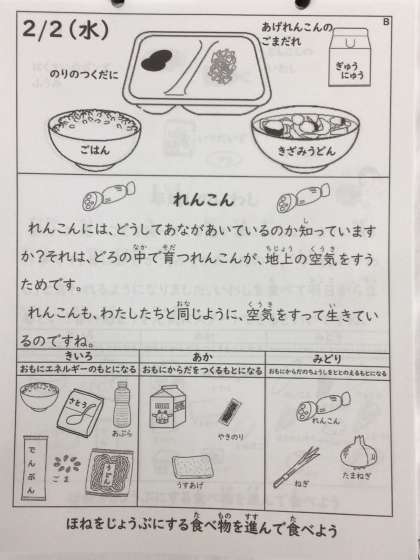 2/2(水)
B
あげれんこんの
ごまだれ
のりのつくだに
ぎゅう
にゅう
ごはん
きざみうどん
れんこん
れんこんには、どうしてあながあいているのか知っています
か?それは、どろの中で育つれんこんが、地上の空気をすう
ためです。
れんこんも、わたしたちと同じように、空気をすって生きてい
るのですね。
きいろ
おもにエネルギーのもとになる
さとう
あぶら
でんぷん
ごま
うどん
あか
おもにからだをつくるもとになる
やきのり
うすあげ
みどり
おもにからだのちょうしをととのえるもとになる
れんこん
ねぎ
たまねぎ
ほねをじょうぶにする食べ物を進んで食べよう